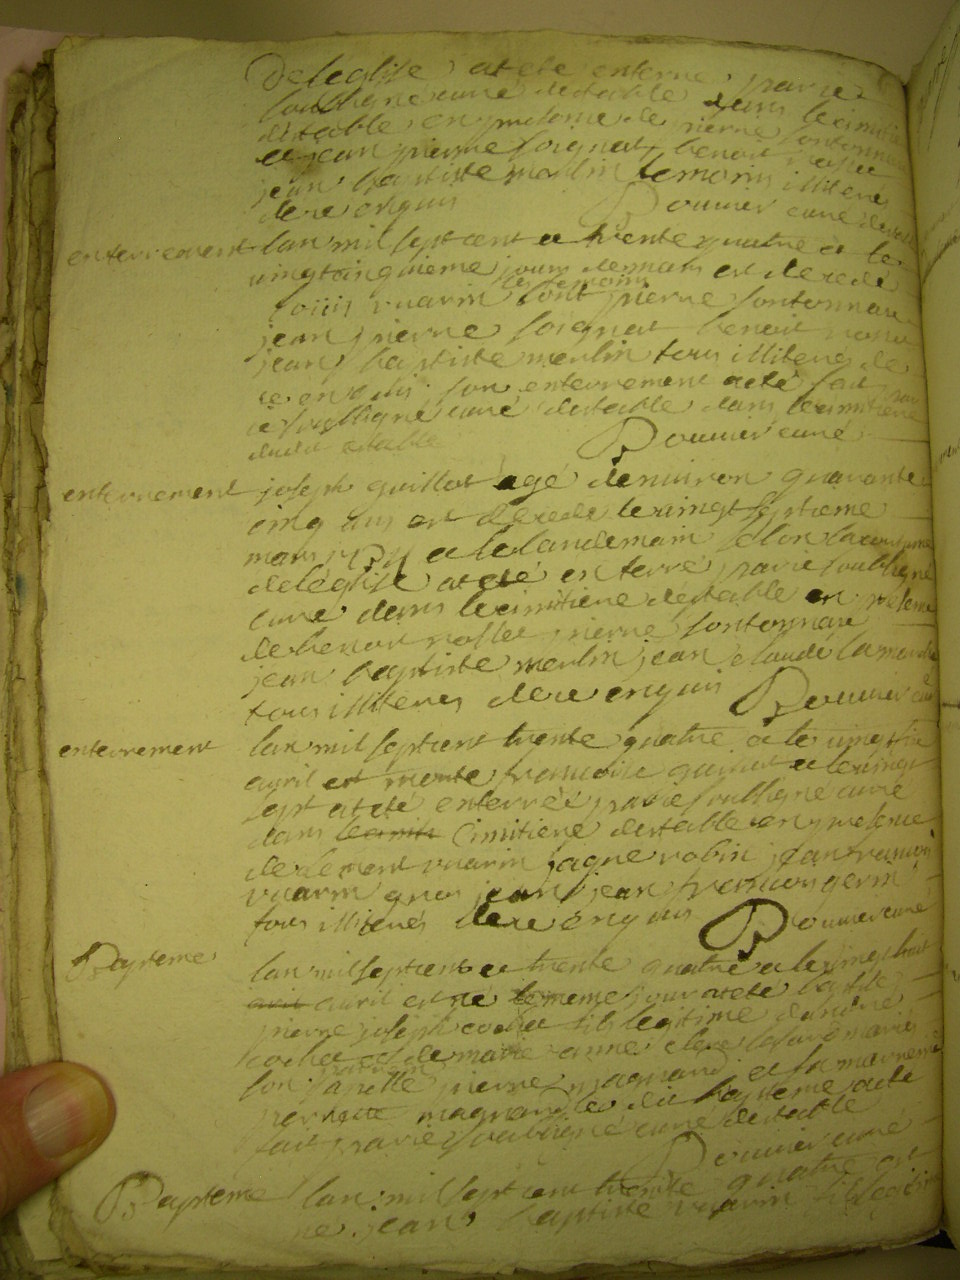 de leglise at ete enterre par ie
soubsigne cure destable dans le cimitie
destable en presence de pierre fontonnau
et jean pierre soignat benoit rosset
jean baptiste merlin temoins illiteres
de ce enquis Bouvier cure destable
enterrement lan mil sept cent et trente quatre et le
vingt cinquieme jour de mars est decede
louis vuarin les temoins sont pierre fontonnau
jean pierre soignat benoit rosset
jean baptiste merlin tous illiteres de
ce enquis son enterrement a eté fait par
ie soubsigné curé destable dans le cimitiere
dudit estable Bouvier curé
enterrement joseph guillot agé denviron quarante
cinq ans est decede le vingt septieme
mars et le landemain selon la coutume
de leglise at eté enterré par ie soubsigne
curé dans le cimitiere destable en presence
de benoit rosset pierre fontonnau
jean baptiste merlin jean claude
tous illiteres de ce enquis Bouvier curé
enterrement lan mil sept cent trente quatre et le vingt six
avril est morte francoise et le vingt
sept at eté enterrée par ie soubsigné curé
dans cimitiere destable en presence
de clement vuarin jaque robin jean francois
vuarin jean francois germi
tous illiteres de ce enquis Bouvier curé
Bapteme lan mil sept cent et trente quatre et le vingt huit
avril est né le meme jour at eté baptisé
pierre joseph cochet fils legitime dandré
cochet et de marie anne mariés
son parrain sapelle pierre magnand et la marraine
pernette magnand le dit bapteme a eté
fait par ie soubsigné curé destable
Bouvier curé
Bapteme lan mil sept cent trente quatre est
né jean baptiste vuarin fils legitime